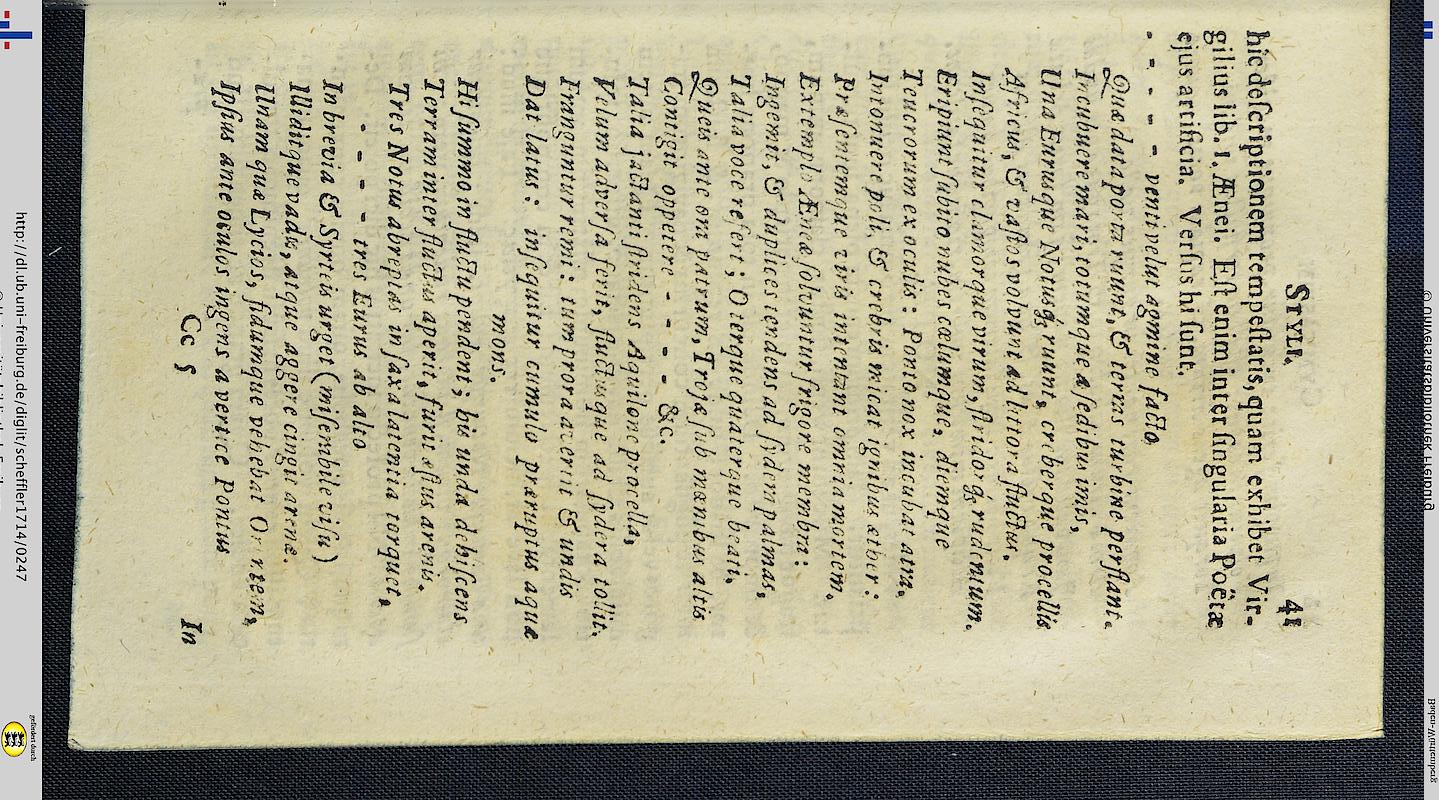 STYLI. 41
hic deſcriptionem tempeſtatis, quam exhibet Vir-
gilius lib. 1. Ænei. Eſt enim inter ſingularia Poëtæ
ejus artificia. Verſus hi ſunt.
- - - - - venti velut agmine facto,
Quæ data porta ruunt, & terras turbine perflant.
Incubuere mari, totumque a ſedibus imis,
Una Eurusque Notusq; ruunt, creberque procellis
Africus, & vaſtos volvunt ad littora fluctus.
Inſequitur clamorque virum, ſtridorq; rudentum.
Eripiunt ſubito nubes cœlumque, diemque
Teucrorum ex oculis: Ponto nox incubat atra.
Intonuere poli, & crebris micat ignibus æther:
Præſentemque viris intentant omnia mortem.
Extemplo Æneæ ſolvuntur frigore membra:
Ingemit, & duplices tendens ad ſydera palmas,
Talia voce refert; O terque quaterque beati,
Queis ante ora patrum, Trojæ ſub mœnibus altis
Contigit oppetere - - - - &c.
Talia jactanti ſtridens Aquilone procella,
Velum adverſa ferit, fluctusque ad ſydera tollit.
Franguntur remi: tum prora avertit & undis
Dat latus: inſequitur cumulo præruptus aquæ
mons.
Hi ſummo in fluctu pendent; his unda dehiſcens
Terram inter fluctus aperit, furit æſtus arenis.
Tres Notus abreptas in ſaxa latentia torquet.
- - - - tres Eurus ab alto
In brevia & Syrtis urget (miſerabile viſu)
Illiditque vadis, atque aggere cingit arenæ.
Unam quæ Lycios, fidumque vehebat Orontem,
Ipſius ante oculos ingens a vertice Pontus
Cc 5 In
http://dl.ub.uni-freiburg.de/diglit/scheffler1714/0247
© Universitätsbibliothek Freiburg
gefördert durch